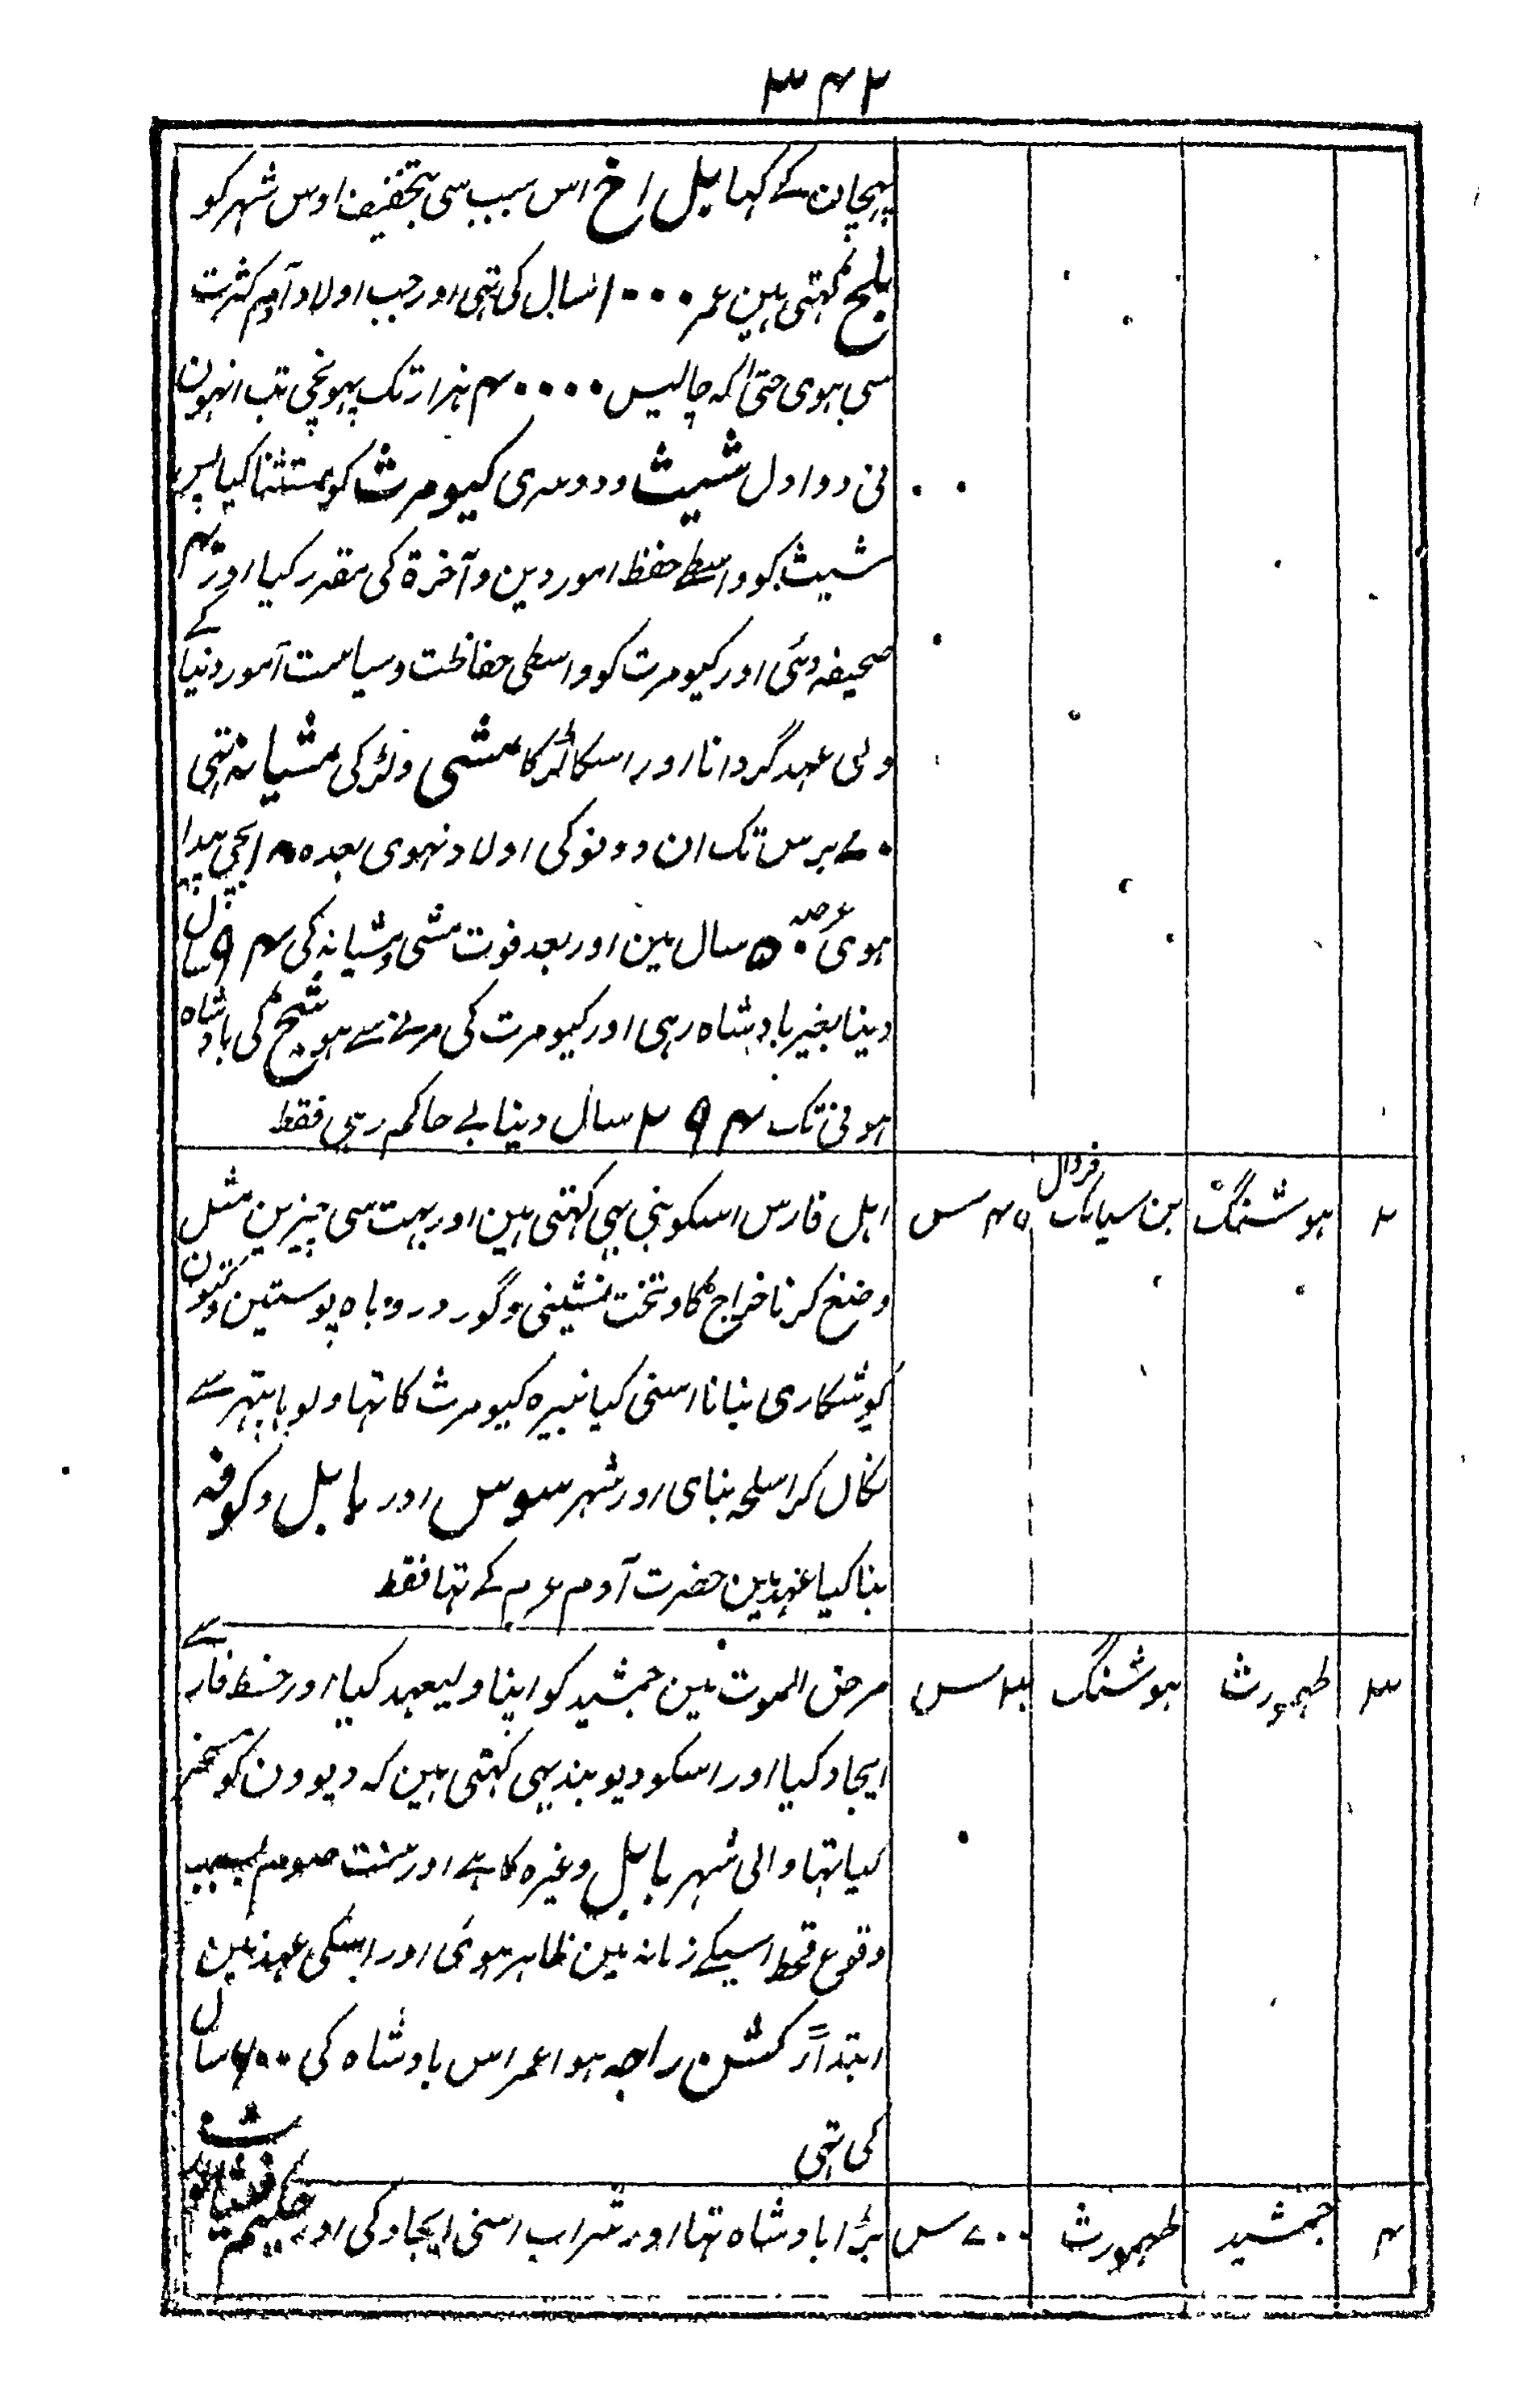 ۳۴۲
پہچان کے کہا بل اخ اس سبب سی بتخفیف اوس شہر کو
بلخ کہتی ہین عمر ۱۰۰۰ سال کی تہی اور جب اولاد آدم کثرت
سی ہوی حتی کہ چالیس ۴۰۰۰۰ ہزار تک پہونچی تب انہون
نی دو اول شیث و دوسری کیومرث کو مستثنا کیا پس
شیث کو واسطے حفظ امور دین و آخرة کی مقرر کیا اور ۴۰
صحیفہ دئی اور کیومرث کو واسطی حفاظت و سیاست امور دنیا کے
ولی عہد گردانا اور اسکا لڑکا مشی و لڑکی مشیانہ تہی
۷۰ برس تک ان دونو کی اولاد نہوی بعدہ ۱۸ بچی پیدا
ہوی عرصہ ۵۰ سال مین اور بعد فوت مشی و مشیانہ کی ۹۴ سال
دنیا بغیر بادشاہ رہی اور کیومرث کی مرنے سے ہوشنج کی بادشاہ
ہونی تک ۲۹۴ سال دنیا بے حاکم رہی فقط
۲ ہوشنگ بن سیامک فروال ۴۰ س اہل فارس اسکو بنی بہی کہتی ہین اور بہت سی چیزین مثل
وضع کرنا خراج کا و تخت نشینی و گور در و باہ پوستین و کتون
کو شکاری بنانا اسنی کیا نبیرہ کیومرث کا تہا و لوہا پتہر سے
نکال کر اسلحہ بنای اور شہر سوس اور بابل و کوفہ
بنا کیا عہد مین حضرت آدم ع م کے تہا فقط
۳ طہمورث ہوشنگ ۳۰ س مرض الموت مین جمشید کو اپنا ولیعہد کیا اور خط فارسے
ایجاد کیا اور اسکو دیو بند بہی کہتی ہین کہ دیوون کو مسخر
کیا تہا والی شہر بابل وغیرہ کا ہے اور سنت صوم بسبب
وقوع قحط اسیکے زمانہ مین ظاہر ہوئی اور اسکی عہد مین
ابتداءً کشن راجہ ہوا عمر اس بادشاہ کی ۸۰۰ سال
کی تہی
۴ جمشید طہمورث ۷۰۰ س بڑا بادشاہ تہا اور شراب اسنی ایجاد کی اور حکیم